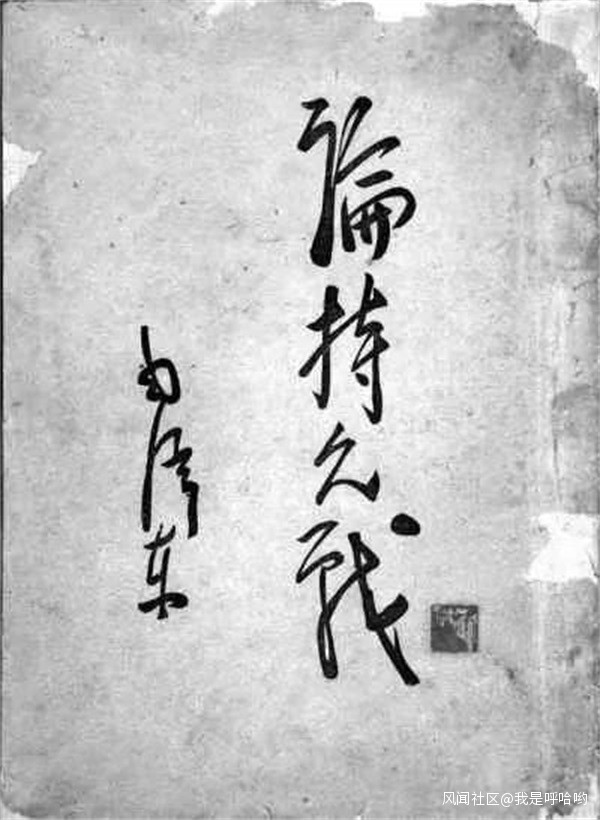 論持久戰
毛澤东
风闻社区@我是呼哈哟